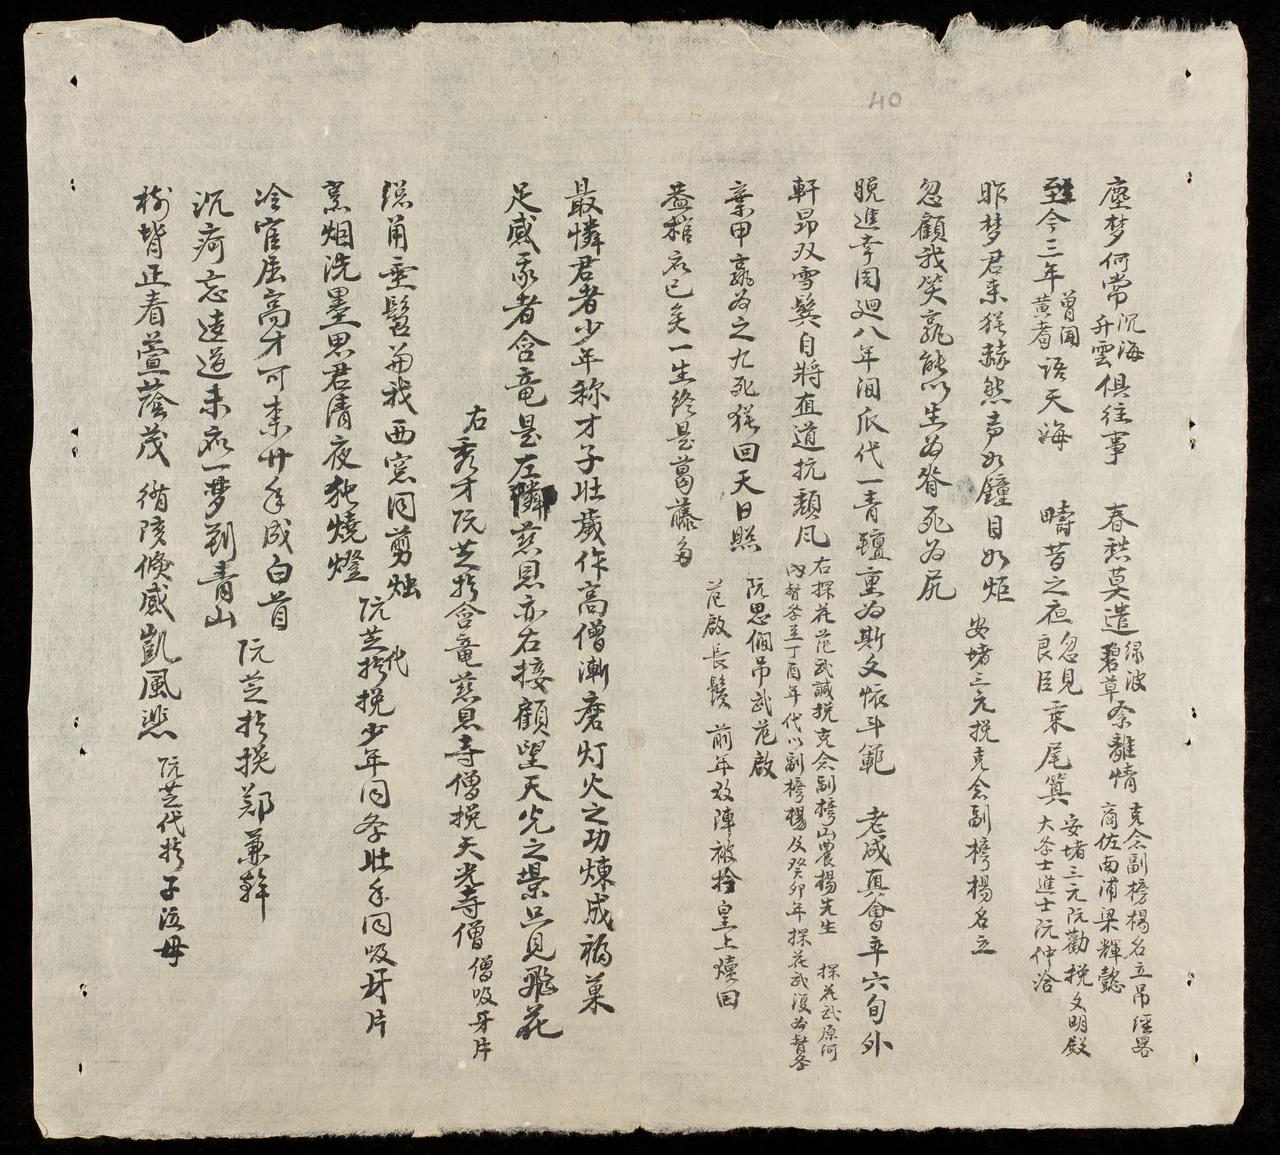 塵梦何常沉海升雲俱徃事 春秩莫遣緑波碧草奈離情 克念副榜楊名立吊經畧商佐南浦梁輝懿
至今三年曾聞黄耈语天海 疇昔之夜忽見良臣乗尾箕 安堵三元阮勸挽文明殿大斈士進士阮仲洽
昨梦君来猶赫然声如鐘目如炬
忽顧我笑孰能以生为脊死为尻 安堵三元挽克念副榜楊名立
晚進幸周廻八年洄瓜代一青氊重为斯文恢斗範 老成真會率六旬外
軒昂双雪鬓自將直道抗頽凡 右探花范武誠挽克念副榜山農楊先生 探花武原河内督斈至丁酉年代以副榜楊及癸卯年探花武復为督斈
棄甲孰为之九死猶回天日照 阮思僩吊武范啟
蓋棺亦已矣一生終是葛藤多 范啟長鬚 前年放陣被拴皇上燣回
最憐君者少年称才子壮歲作高僧漸磨灯火之功煉成福菓
足感委者含竜是左憐慈恩亦右接顧望天光之景只見飛花
右秀才阮芝於含竜慈恩寺僧挽天光寺僧 僧吸牙片
総甬垂髫苐我西窓同剪烛
烹烟洗墨思君清夜独燒燈 阮芝代於挽少年同斈壮年同吸牙片
冷官屈高才可柰廾年成白首
沉疴忘遠道未亦一梦到青山 阮芝於挽郑兼幹
树背正看萱蔭茂 循陔倏感凱風悲 阮芝代於子泣母
40